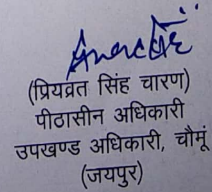 (प्रियव्रत सिंह चारण)
पीठासीन अधिकारी
उपखण्ड अधिकारी, चौमूं
(जयपुर)